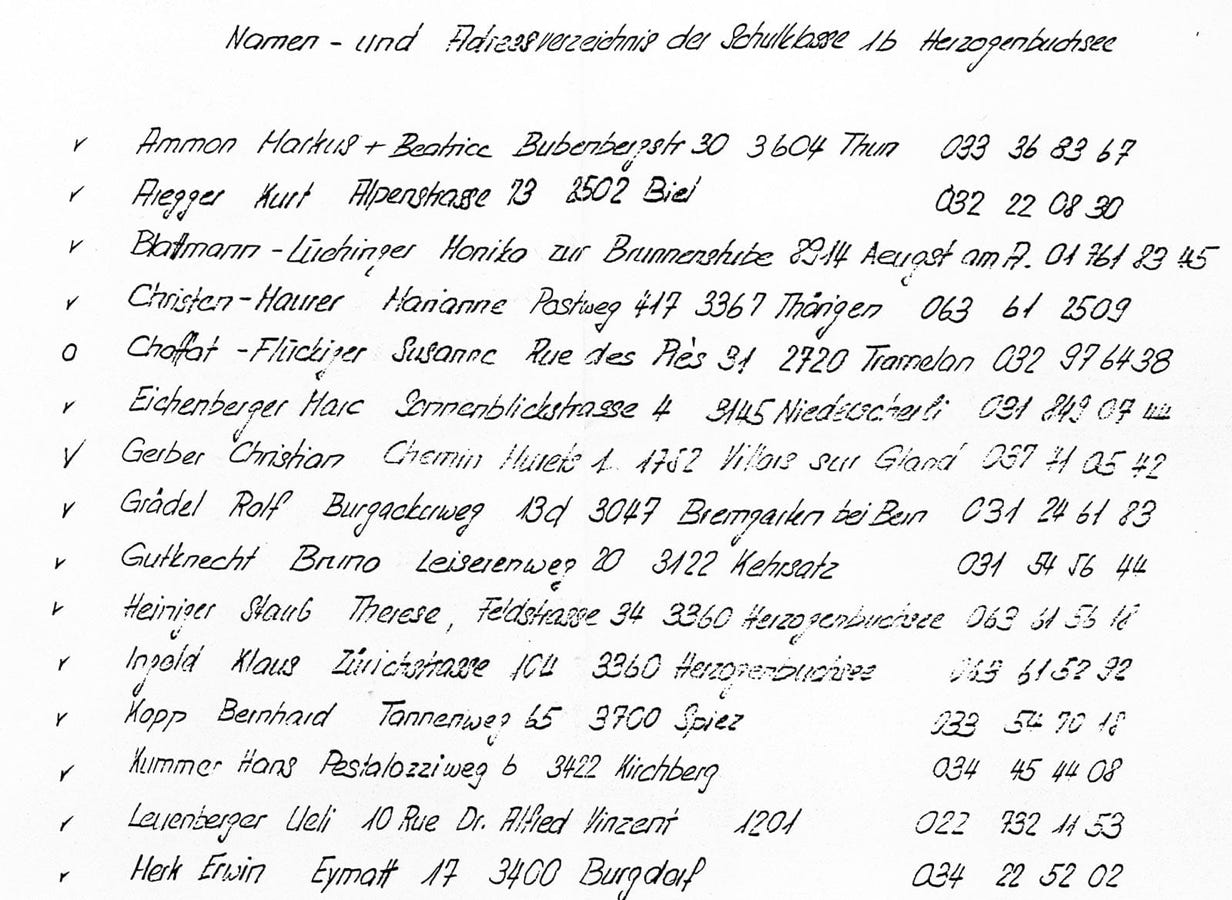 Namen - und Adressverzeichnis der Schulklasse 1b Herzogenbuchsee
Ammon Markus + Beatrice Bubenbergstr 30 3604 Thun 033 36 83 67
Aregger Kurt Alpenstrasse 73 2502 Biel 032 22 08 30
Blattmann - Lüchinger Monika zur Brunnenstube 8914 Aeugst am A. 01 761 83 45
Christen - Maurer Marianne Postweg 417 3367 Thörigen 063 61 2509
Choffat - Flückiger Susanne Rue des Prés 31 2720 Tramelan 032 97 64 38
Eichenberger Marc Sonnenblickstrasse 4 3145 Niederscherli 031 849 07 44
Gerber Christian Chemin 1 1752 Villars sur Gland 037 41 05 42
Grädel Rolf Burgackerweg 13d 3047 Bremgarten bei Bern 031 24 61 83
Gutknecht Bruno Leiserenweg 20 3122 Kehrsatz 031 54 56 44
Heiniger Staub Therese, Feldstrasse 34 3360 Herzogenbuchsee 063 61 56 18
Ingold Klaus Zürichstrasse 104 3360 Herzogenbuchsee 063 61 52 92
Kopp Bernhard Tannenweg 65 3700 Spiez 033 54 70 18
Kummer Hans Pestalozziweg 6 3422 Kirchberg 034 45 44 08
Leuenberger Ueli 10 Rue Dr. Alfred Vinzent 1201 022 732 11 53
Merk Erwin Eymatt 17 3400 Burgdorf 034 22 52 02